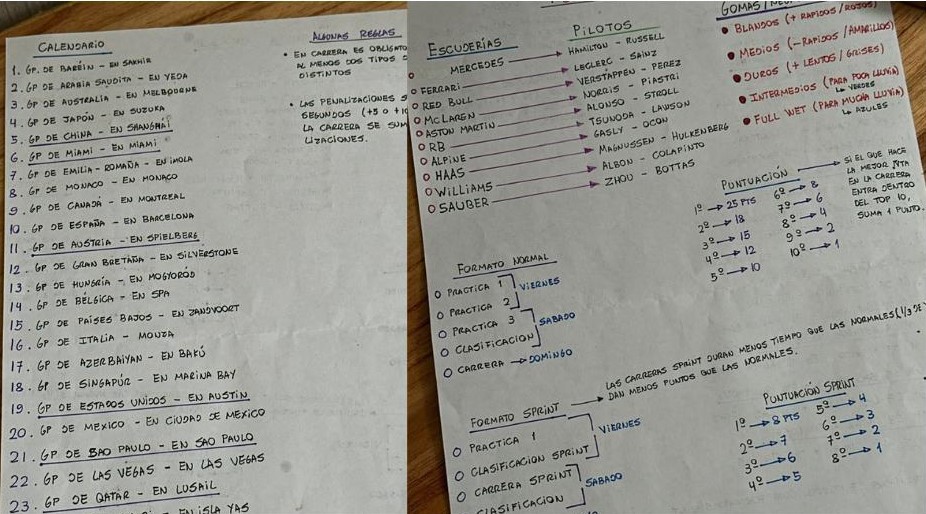 CALENDARIO
1. GP DE BARÉIN - EN SAKHIR
2. GP DE ARABIA SAUDITA - EN YEDA
3. GP DE AUSTRALIA - EN MELBOURNE
4. GP DE JAPÓN - EN SUZUKA
5. GP DE CHINA - EN SHANGHÁI
6. GP DE MIAMI - EN MIAMI
7. GP DE EMILIA-ROMAÑA - EN IMOLA
8. GP DE MONACO - EN MONACO
9. GP DE CANADÁ - EN MONTREAL
10. GP DE ESPAÑA - EN BARCELONA
11. GP DE AUSTRIA - EN SPIELBERG
12. GP DE GRAN BRETAÑA - EN SILVERSTONE
13. GP DE HUNGRÍA - EN MOGYORÓD
14. GP DE BÉLGICA - EN SPA
15. GP DE PAÍSES BAJOS - EN ZANDVOORT
16. GP DE ITALIA - MONZA
17. GP DE AZERBAIYAN - EN BAKÚ
18. GP DE SINGAPÚR - EN MARINA BAY
19. GP DE ESTADOS UNIDOS - EN AUSTIN
20. GP DE MEXICO - EN CIUDAD DE MEXICO
21. GP DE SAO PAULO - EN SAO PAULO
22. GP DE LAS VEGAS - EN LAS VEGAS
23. GP DE QATAR - EN LUSAIL
EN ISLA YAS
ALGUNAS REGLAS
• EN CARRERA ES OBLIGATO
AL MENOS DOS TIPOS D
DISTINTOS
• LAS PENALIZACIONES S
SEGUNDOS (+5 o +1
LA CARRERA SE SUM
LIZACIONES.
ESCUDERÍAS PILOTOS
MERCEDES → HAMILTON - RUSSELL
FERRARI → LECLERC - SAINZ
RED BULL → VERSTAPPEN - PEREZ
McLAREN → NORRIS - PIASTRI
ASTON MARTIN → ALONSO - STROLL
RB → TSUNODA - LAWSON
ALPINE → GASLY - OCON
HAAS → MAGNUSSEN - HULKENBERG
WILLIAMS → ALBON - COLAPINTO
SAUBER → ZHOU - BOTTAS
GOMAS
• BLANDOS (+ RAPIDOS / ROJOS)
• MEDIOS (- RAPIDOS / AMARILLOS)
• DUROS (+ LENTOS / GRISES)
• INTERMEDIOS (PARA POCA LLUVIA)
↳ VERDES
• FULL WET (PARA MUCHA LLUVIA)
↳ AZULES
PUNTUACIÓN
1º → 25 PTS 6º → 8
2º → 18 7º → 6
3º → 15 8º → 4
4º → 12 9º → 2
5º → 10 10º → 1
SI EL QUE HACE
LA MEJOR VTA
EN LA CARRERA
ENTRA DENTRO
DEL TOP 10,
SUMA 1 PUNTO.
FORMATO NORMAL
PRACTICA 1
PRACTICA 2
VIERNES
PRACTICA 3
CLASIFICACION
SABADO
CARRERA → DOMINGO
FORMATO SPRINT → LAS CARRERAS SPRINT DURAN MENOS TIEMPO QUE LAS NORMALES (1/3 DE
DAN MENOS PUNTOS QUE LAS NORMALES.
PRACTICA 1
CLASIFICACION SPRINT
VIERNES
CARRERA SPRINT
CLASIFICACION
SABADO
PUNTUACIÓN SPRINT
1º → 8 PTS 5º → 4
2º → 7 6º → 3
3º → 6 7º → 2
4º → 5 8º → 1